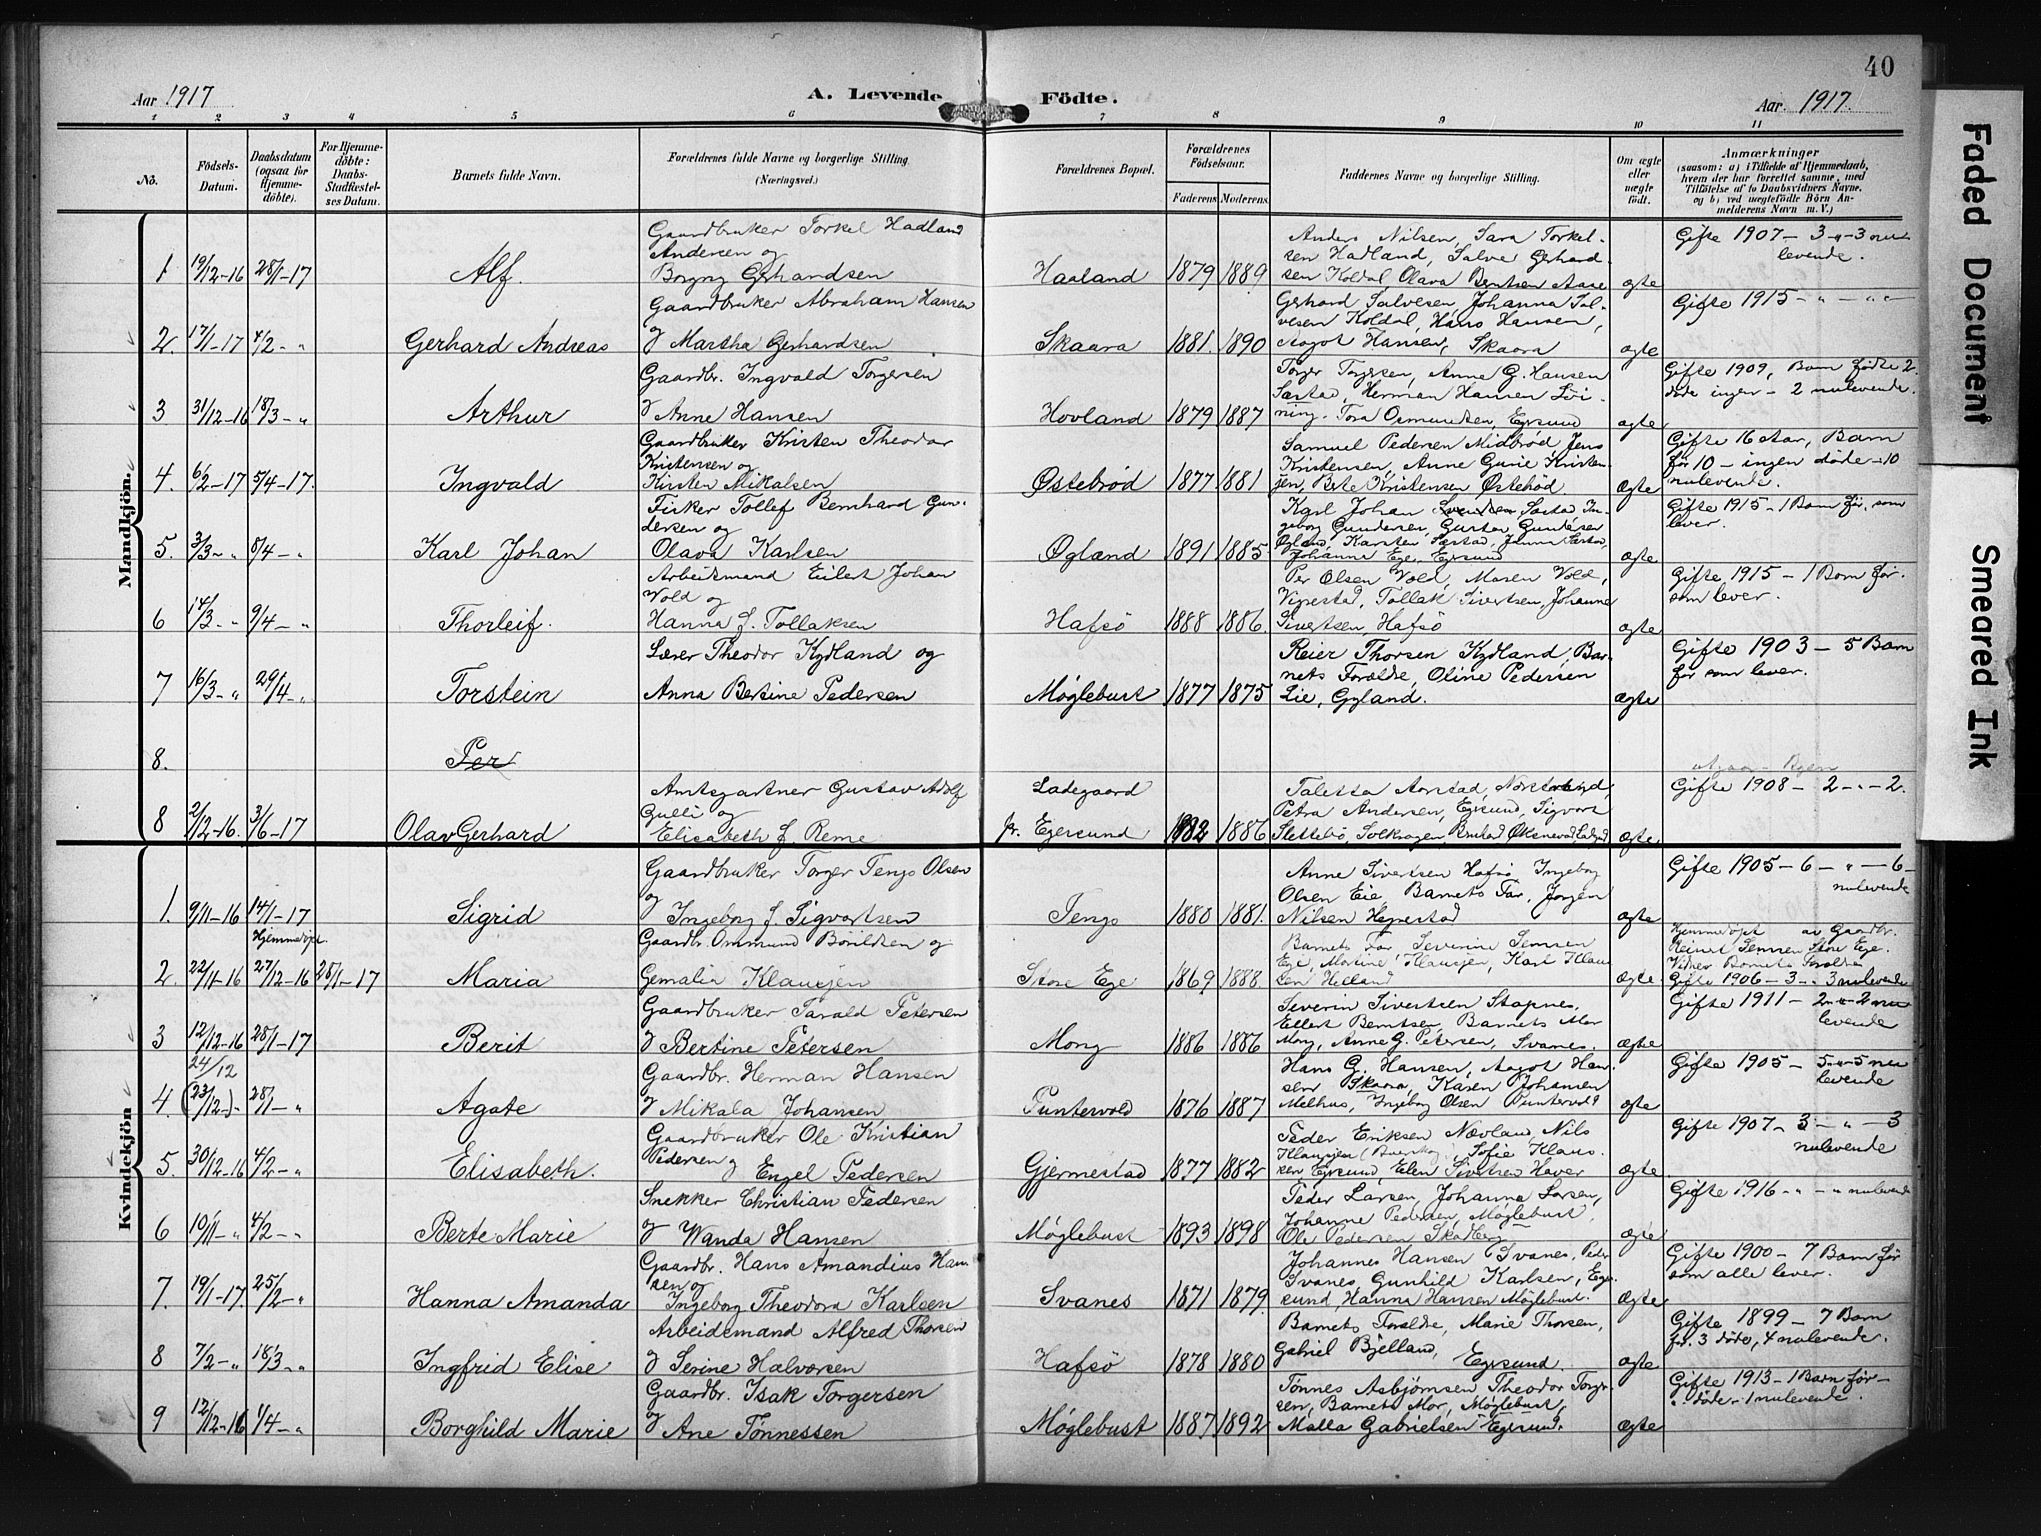 40
Aar 1917
A. Levende Födte.
Aar. 1917.
1 2 3 4 5 6 7 8 9 10 11
No.
Födsels-Datum.
Daabsdatum (ogsaa for Hjemme-döbte).
For Hjemme-döbte: Daabs-Stadfæstel-ses Datum.
Barnets fulde Navn.
Forældrenes fulde Navne og borgerlige Stilling. (Næringsvei.)
Forældrenes Bopæl.
Forældrenes Födselsaar.
Faderens Moderens
Faddernes Navne og borgerlige Stilling.
Om ægte eller uægte født.
Anmærkninger
(saasom: a) i Tilfælde af Hjemmedaab, hvem der har forrettet samme, med Tilføielse af to Daabsvidners Navne, og b) ved uægtefödte Börn An-melderens Navn m. V.)
Mandkjön.
1 19/12-16 28/1-17 Alf. Gaardbruker Torkel Hadland Andersen og Borgny Gerhandsen Haaland 1879 1889 Anders Nilsen, Sara Torkel-sen Hadland, Salve Gerhard-sen Koldal, Olava Berntsen Aase ægte Gifte 1907 - 3 - " - 3 nu levende.
2. 17/1-17 4/2 - " Gerhard Andreas Gaardbruker Abraham Hansen og Martha Gerhardsen Skaara 1881. 1890 Gerhard Salvesen, Johanna Sal-vesen Koldal, Hans Hansen, Aagot Hansen, Skaara ægte Gifte 1915 - " - " -
3 31/12-16 18/3 - " Arthur Gaardbr. Ingvald Torgersen og Anne Hansen Hovland 1879 1887 Torger Torgersen, Anne G. Hansen Sæstad, Herman Hansen Svi-ning. Tora Osmundsen, Egersund ægte Gifte 1909, Barn fødte 2. døde ingen - 2 nulevende.
4. 6/2-17 5/4-17. Ingvald Gaardbruker Kristen Theodor Kristensen og Kirsten Mikalsen Østebrød 1877 1881 Samuel Pedersen Midbrød, Jens Kristensen, Anne Gurie Kristen-sen, Berte Kristensen Østebød. ægte Gifte 16 Aar, Barn før 10 - ingen døde - 10 nulevende.
5. 3/3 - " 8/4 - " Karl Johan Fisker Tollef Bernhard Gun-dersen og Olava Karlsen Øgland 1891 1885 Karl Johan Sæstad, In-geborg Gundersen, Gustav Gundersen Øgland, Karsten Sæstad, Johanna Ege, Egrsund ægte Gifte 1915 - 1 Barn før, som lever.
6 14/3 - " 9/4 - " Thorleif. Arbeidsmand Eilert Johan Wold og Hanna f. Tollaksen Hafsö 1888 1886. Per Olsen Wold, Maren Wold, Vigrestad, Tollak Sivertsen, Johanne Sivertsen, Hafsö ægte Gifte 1915 - 1 Barn før. som lever.
7 16/3 - " 29/4 - " Torstein Lærer Theodor Kydland og Anna Bertine Pedersen Møglebust 1877 1875 Reier Thorsen Kydland, Bar-nets Foræ̈ldre, Oline Pedersen Lie, Gyland. ægte Gifte 1903 - 5 Barn før som lever.
8. Per
8 2/12-16. 3/6-17 Olav Gerhard Amtsgartner Gustav Adolf Gulli og Elisabeth f. Reme Ladegaard pr. Egersund 1882 1886 Taletta Aarstad, Petra Andersen, Egersund, Sigvart Slettebö, ægte Gifte 1908 - 2 - " - 2.
Kvindekjön
1. 9/11-16 14/1-17 Sigrid Gaardbruker Torger Tengs Olsen og Ingeborg f. Sigvartsen Tengs 1880 1881. Anne Sivertsen Hafsö, Ingeborg Olsen Eie, Barnets Far, Jørgen Nilsen Hegrestad ægte Gifte 1905 - 6 - " - 6 - nulevende
2. 22/11-16 Hjemmedøpt. 27/12-16 28/1-17 Maria Gaardbr. Ommund Børildsen og Gemalia Klausjen Store Ege 1869 1888. Barnets Far, Severine Semsen Ege, Martine Klausjen, Karl Klau-sen Helland ægte. Hjemmedøpt av Gaardbr. Reinert Semsen Store Ege. Vidner Barnets Forældre Gifte 1906 - 3 - " 3 nulevende
3 12/12-16 28/1-17 Berit Gaardbruker Tarald Petersen og Bertine Petersen Mong 1886 1886 Severin Sivertsen Stapnes, Ellert Berntsen, Barnets Mor Mong, Anne G. Petersen, Svanes. ægte Gifte 1911 - 2 - " - 2 nu levende
4. 24/12 (23/12-)- 28/1 - " Agate Gaardbr. Herman Hansen og Mikala Johansen Puntervold 1876 1887 Hans G. Hansen, Aagot Han-sen Skaara, Karen Johansen Melhus, Ingeborg Olsen Puntervold ægte Gifte 1905 - 5 - " - 5 nu levende
5. 30/12-16 4/2 - " Elisabeth. Gaardbruker Ole Kristian Pedersen og Engel Pedersen Gjermestad 1877 1882 Peder Eriksen Nævland, Nils Klausjen Sofie Klaus-sen Egrsund, Elen Sivertsen Haver ægte Gifte 1907 - 3 - " - 3 nulevende
6 10/11 - " 4/2 - " Berte Marie Snekker Christian Pedersen og Wanda Hansen Møglebust 1893 1898 Peder Larsen, Johanna Larsen, Johanne Pedersen, Møglebust, Ole Pedersen Skadberg ægte Gifte 1916 - " - " nulevende
7. 19/1-17. 25/2 - " Hanna Amanda Gaardbr. Hans Amandius Han-sen og Ingeborg Theodora Karlsen Svanes 1871 1879. Johannes Hansen Svanes, Peder Svanes, Gunhild Karlsen, Eger-sund, Hanna Hansen Møglebust. Ægte Gifte 1900 - 7 Barn før som alle lever.
8 7/2 - " 18/3 - " Ingfrid Elise Arbeidsmand Alfred Thorsen og Serine Halvorsen Hafsö 1878 1880 Barnets Forældre, Marie Thorsen, Gabriel Bjelland, Egrsund. ægte Gifte 1899 - 7 Barn før. 3 døde, 4 nulevende.
9 12/12-16 1/4 - " Borghild Marie Gaardbr. Isak Torgersen og Ane Tønnessen Møglebust 1887 1892 Tønnes Asbjørnsen, Theodor Torger-sen, Barnets Mor, Møglebust, Malla Gabrielsen Egersund. ægte Gifte 1913 - 1 Barn før - " døde - 1 nulevende.
Faded Document
Smeared Ink